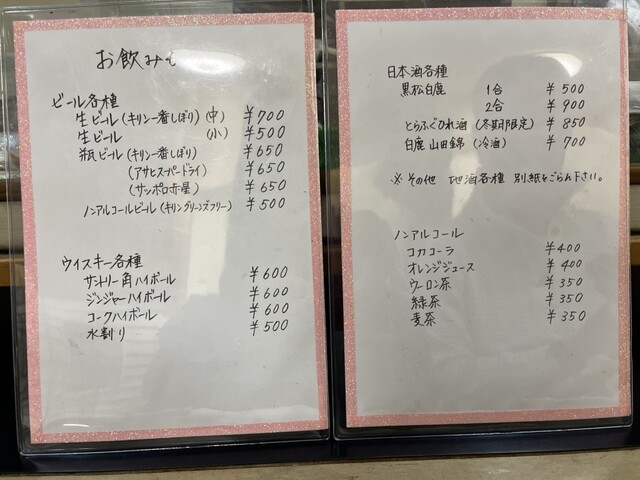 お飲みもの
ビール各種
生ビール(キリン一番しぼり)(中) ¥700
生ビール (小) ¥500
瓶ビール(キリン一番しぼり) ¥650
(アサヒスーパードライ) ¥650
(サッポロ赤星) ¥650
ノンアルコールビール(キリングリーンズフリー) ¥500
ウイスキー各種
サントリー角ハイボール ¥600
ジンジャーハイボール ¥600
コークハイボール ¥600
水割り ¥500
日本酒各種
黒松白鹿 1合 ¥500
2合 ¥900
とらふぐひれ酒(冬期限定) ¥850
白鹿 山田錦(冷酒) ¥700
※その他 地酒各種 別紙をごらん下さい。
ノンアルコール
コカコーラ ¥400
オレンジジュース ¥400
ウーロン茶 ¥350
緑茶 ¥350
麦茶 ¥350